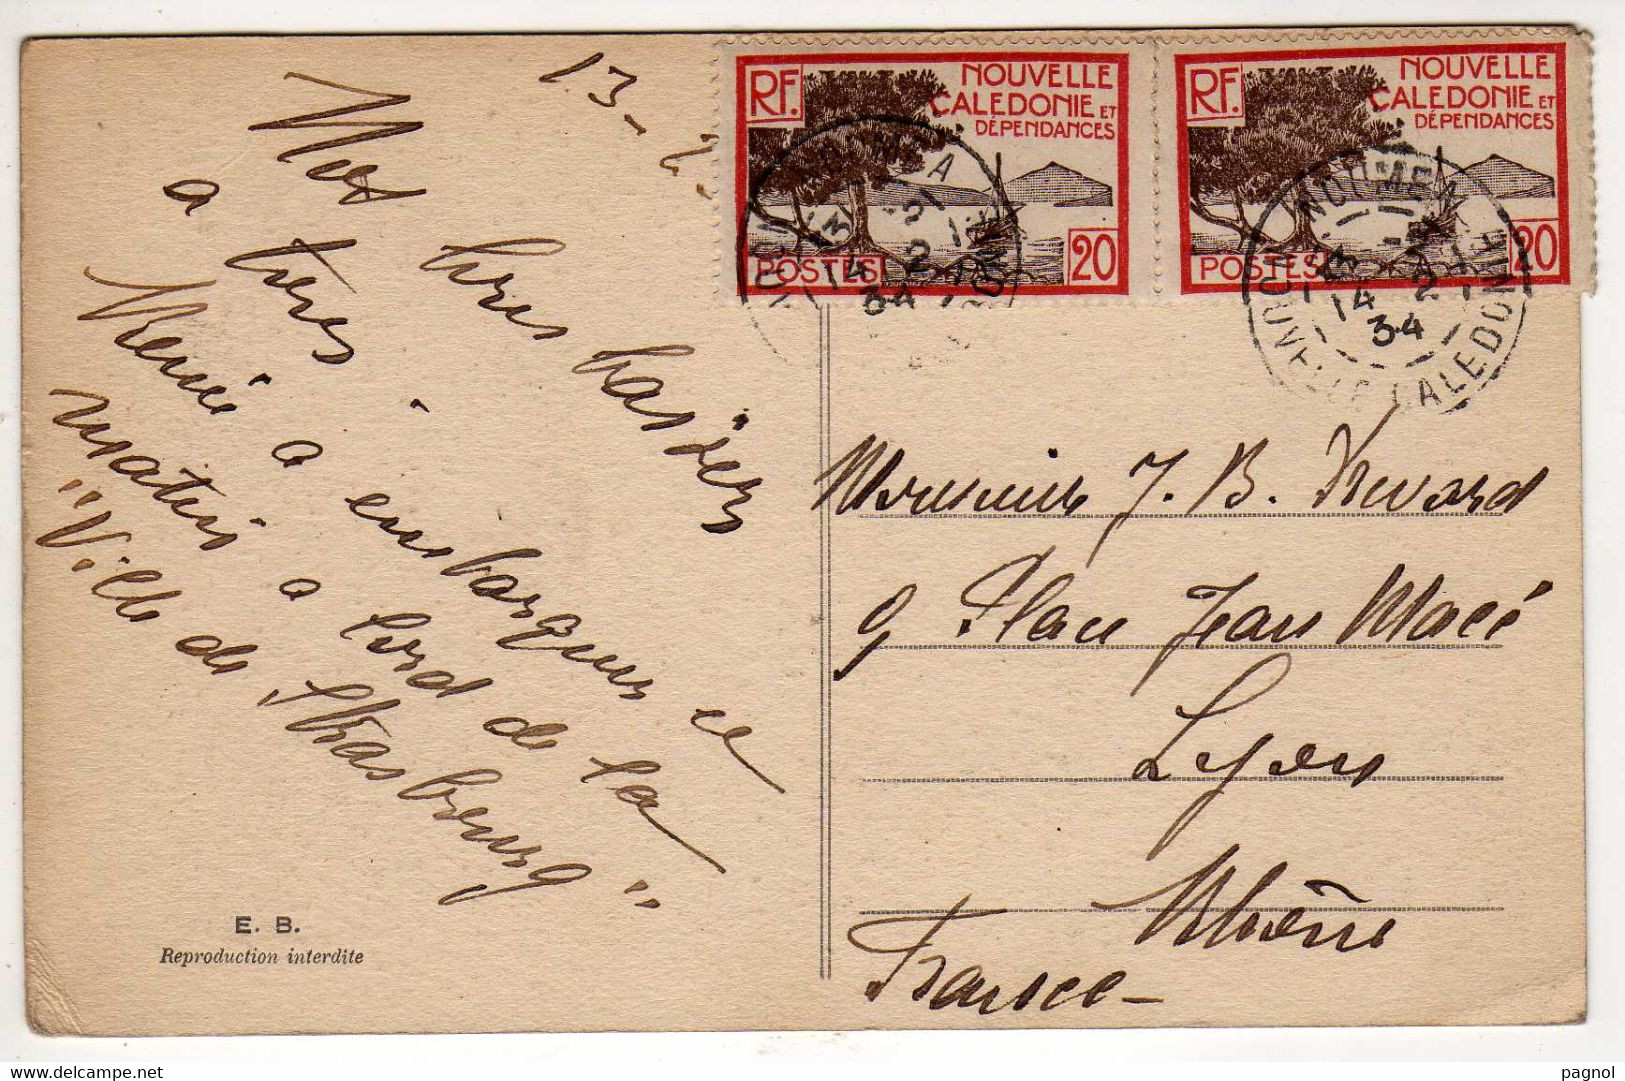 13-2-
Nos bons baisers
à tous.
René a embarqué ce
matin à bord de la
"Ville de Strasbourg"
E. B.
Reproduction interdite
RF.
NOUVELLE
CALEDONIE ET
DÉPENDANCES
POSTES
20
RF.
NOUVELLE
CALEDONIE ET
DÉPENDANCES
POSTES
20
NOUMEA
14 2
34
NOUMEA
14 2
34
NOUVELLE CALEDONIE
Monsieur J. B. Revard
9 Place Jean Macé
Lyon
Rhône
France-
pagnol